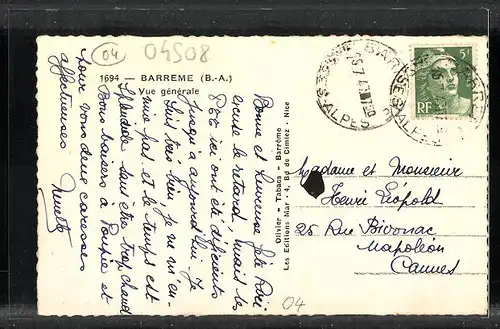 04
04508
1694 BARREME (B.-A.)
Vue générale
Bonne et heureuse fête
le retard, mais les
ici ont été déficients
jusqu'à aujourd'hui. Je
suis très bien, je ne m'en-
nuie pas, et le temps est
splendide sans être trop chaud
Bons baisers à Poupie et
pour vous deux caresses
affectueuses
Olivier - Tabacs - Barrême
Les Editions Mar - 4, Bd de Cimiez - Nice
BARREME
BSES-ALPES
5F
RF
Madame et Monsieur
Henri Liépold
25 Rue Bivouac
Napoléon
Cannes
04